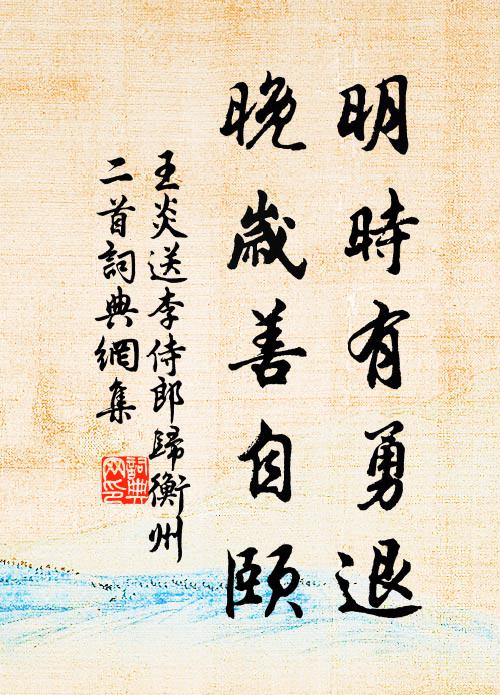 明時有勇退
晚歲善自頤
王炎送李侍郎歸衡州
二首詞典網集
詞典
网印